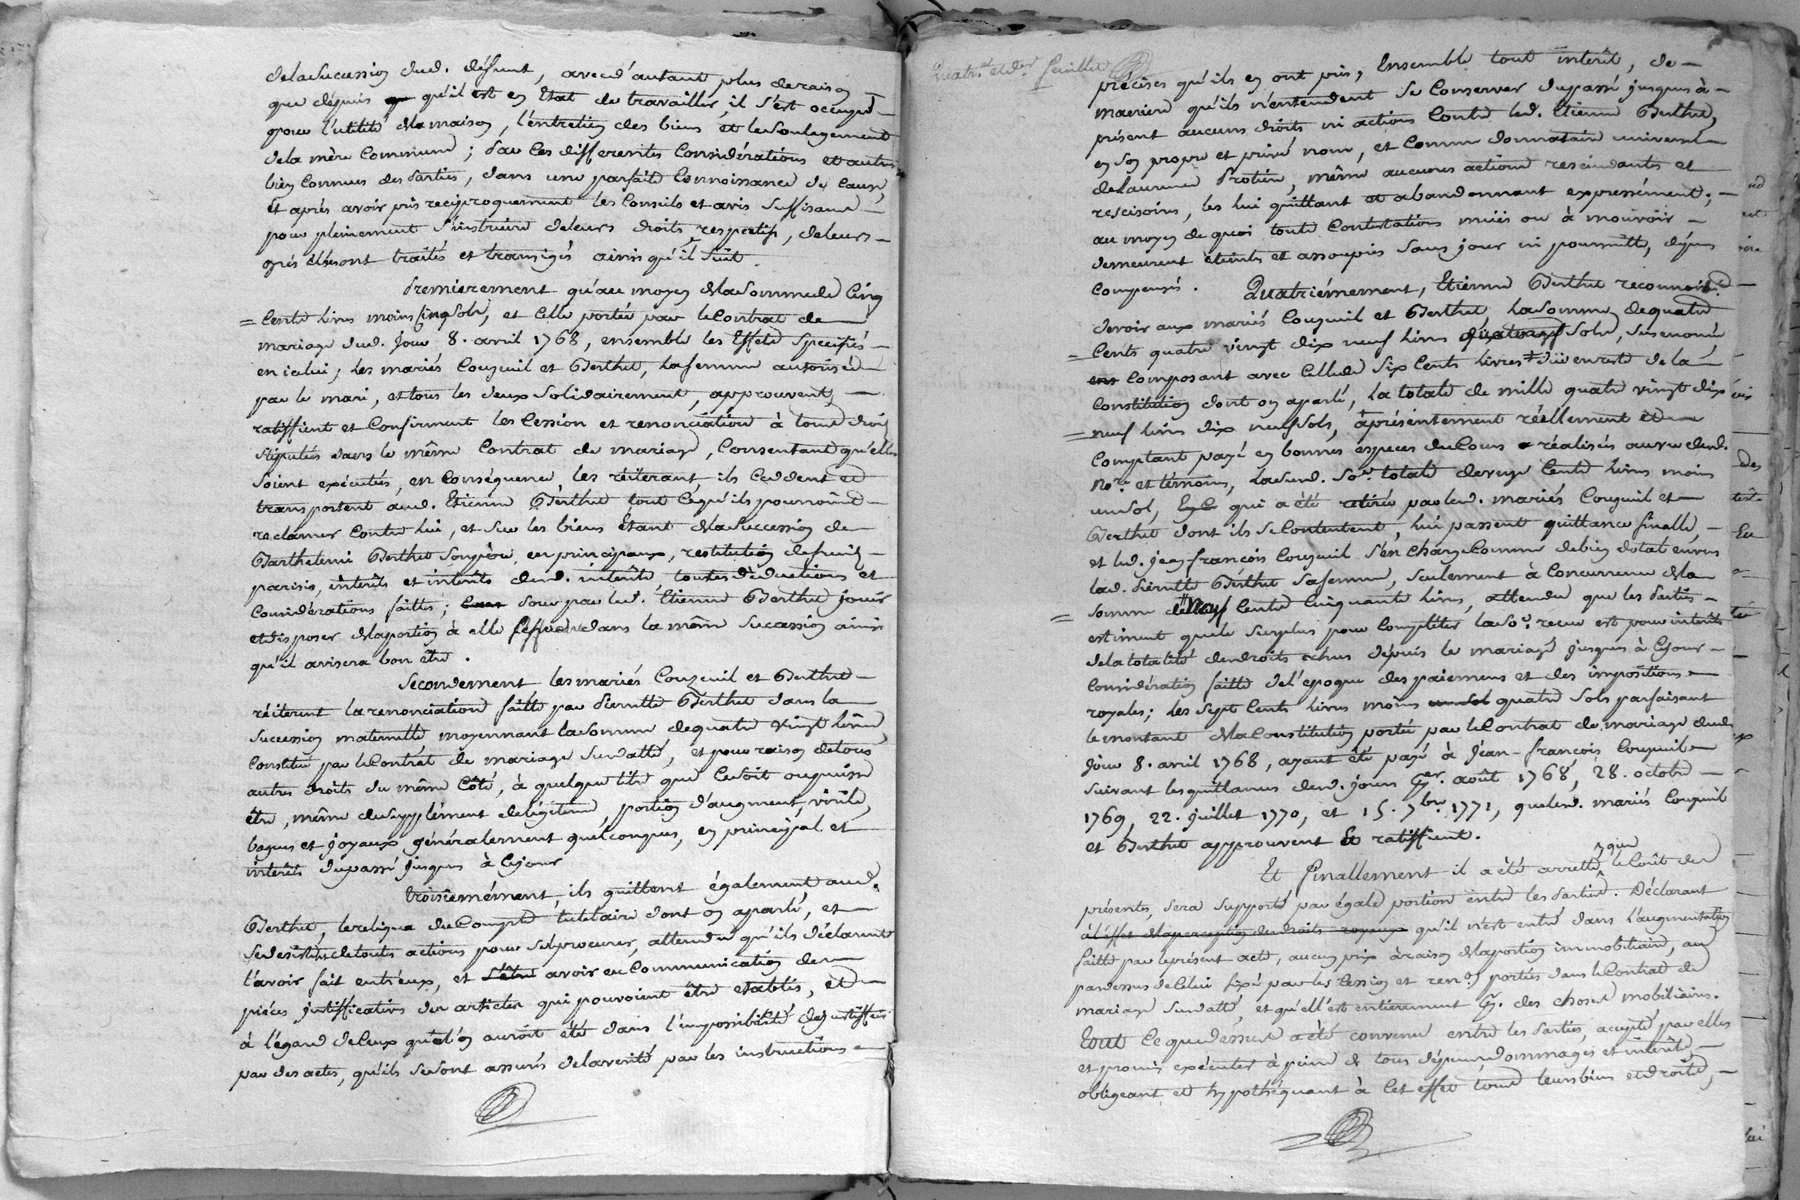 de la succession dud. défunt, avec d'autant plus de raison
que depuis qu'il est en état de travailler, il s'est occupé
pour l'utilité de la maison, l'entretien des biens et le soulagement
de la mère commune ; par ces differentes considérations et autres
bien connues des parties, dans une parfaite connoissance de cause,
et après avoir pris reciproquement les conseils et avis suffisans
pour pleinement s'instruire de leurs droits respectifs, de leurs
grés elles ont traités et transigés ainsi qu'il suit.
Premierement qu'au moyen de la somme de cinq
cents livres moins cinq sols, et celle portée par le contrat de
mariage dud. jour 8. avril 1768, ensemble les effets specifiés
en icelui ; les mariés Couzeuil et Berthet, la femme autorisée
par le mari, et tous les deux solidairement, approuvent,
ratiffient et confirment les cession et renonciation à tous droits
stipulées dans le même contrat de mariage, consentant qu'elles
soient exécutées, en conséquence, les réiterant ils cedent et
transportent aud. Etienne Berthet tout ce qu'ils pourroient
reclamer contre lui, et sur les biens étant de la succession de
Barthelemi Berthet son père, en principaux, restitution de fruits
parisis, intérêts et intérêts desd. intérêts, toutes déductions et
considérations faites ; pour par led. Etienne Berthet jouir
et disposer de la portion à elle dans la même succession ainsi
qu'il avisera bon être.
Secondement les mariés Couzeuil et Berthet
réiterent la renonciation faite par Pierrette Berthet dans la
succession maternelle moyennant la somme de quatre vingt livres
constituée par le contrat de mariage susdatté, et pour raison de tous
autres droits du même côté, à quelque titre que ce soit ou puisse
être, même de supplément de légitime, portion d'augment, virile,
bagues et joyaux généralement quelconques, en principal et
intérêts du passé jusques à ce jour
Troisièmement, ils quittent également aud.
Berthet, le reliqua du compte tutelaire dont on a parlé, et
se desistent de toutes actions pour se le procurer, attendu qu'ils déclarent
l'avoir fait entr'eux, et avoir eu communication des
pièces justifficatives des articles qui pouvoient être etablis, et
à l'égard de ceux qu'on auroit été dans l'impossibilité de justiffier
par des actes, qu'ils se sont assurés de la verité par les instructions
Quatr.e et der feuillet
précises qu'ils en ont pris, ensemble tout intérêt, de
maniere qu'ils n'entendent se conserver du passé jusques à
présent aucuns droits ni actions contre led. Etienne Berthet,
en son propre et privé nom, et comme donnataire universel
de Protin, même aucunes actions rescindantes et
rescisoires, les lui quittant et abandonnant expressément ;
au moyen de quoi toutes contestations muës ou à mouvoir
demeurent éteintes et assoupies sans jour ni poursuitte, dépens
compensés. Quatrièmement, Etienne Berthet reconnoit
devoir aux mariés Couzeuil et Berthet, la somme de quatre
cents quatre vingt dix neuf livres sols, susenoncée,
composant avec celle de six cents livres düe en reste de la
constitution dont on a parlé, la totale de mille quatre vingt dix
neuf livres dix neuf sols, à présentement réellement et
comptant payé en bonnes especes du cours réalisées au vu dud.
no.re et témoins, lad. so.e totale de onze cents livres moins
un sol, qui a été retirée par lesd. mariés Couzeuil et
Berthet dont ils se contentent, lui passent quittance finalle,
et led. jean françois Couzeuil s'en charge comme de bien dotal envers
lad. Pierrette Berthet sa femme, seulement à concurrence de la
somme de neuf cents cinquante livres, attendu que les parties
estiment que le surplus pour completter la so.e recue est pour intérêts
de la totalité des droits échus depuis le mariage jusques à ce jour
considération faitte de l'epoque des paiemens et des impositions
royales ; les sept cents livres moins quatre sols parfaisant
le montant de la constitution portée par le contrat de mariage dud.
jour 8. avril 1768, ayant été payé à jean-françois Couzeuil
suivant les quittances desd. jours 1er. août 1768, 28. octobre
1769, 22. juillet 1770, et 15. 7bre 1771, que lesd. mariés Couzeuil
et Berthet approuvent et ratiffient.
Et finallement il a été arretté que le coût des
présentes, sera supporté par égale portion entre les parties. Déclarant
à l'effet de la perception des droits royaux qu'il n'est entré dans l'augmentation
faitte par le présent acte, aucun prix à raison de la portion immobiliaire, au
par dessus de celui fixé par les cession et ren.on portées dans le contrat de
mariage susdatté, et qu'elle est entierement des choses mobiliaires.
tout ce que dessus a été convenu entre les parties, accepté par elles
et promis exécuter à peine de tous dépens dommages et intérêts
obligeant et hypothéquant à cet effet tous leurs biens et droits,